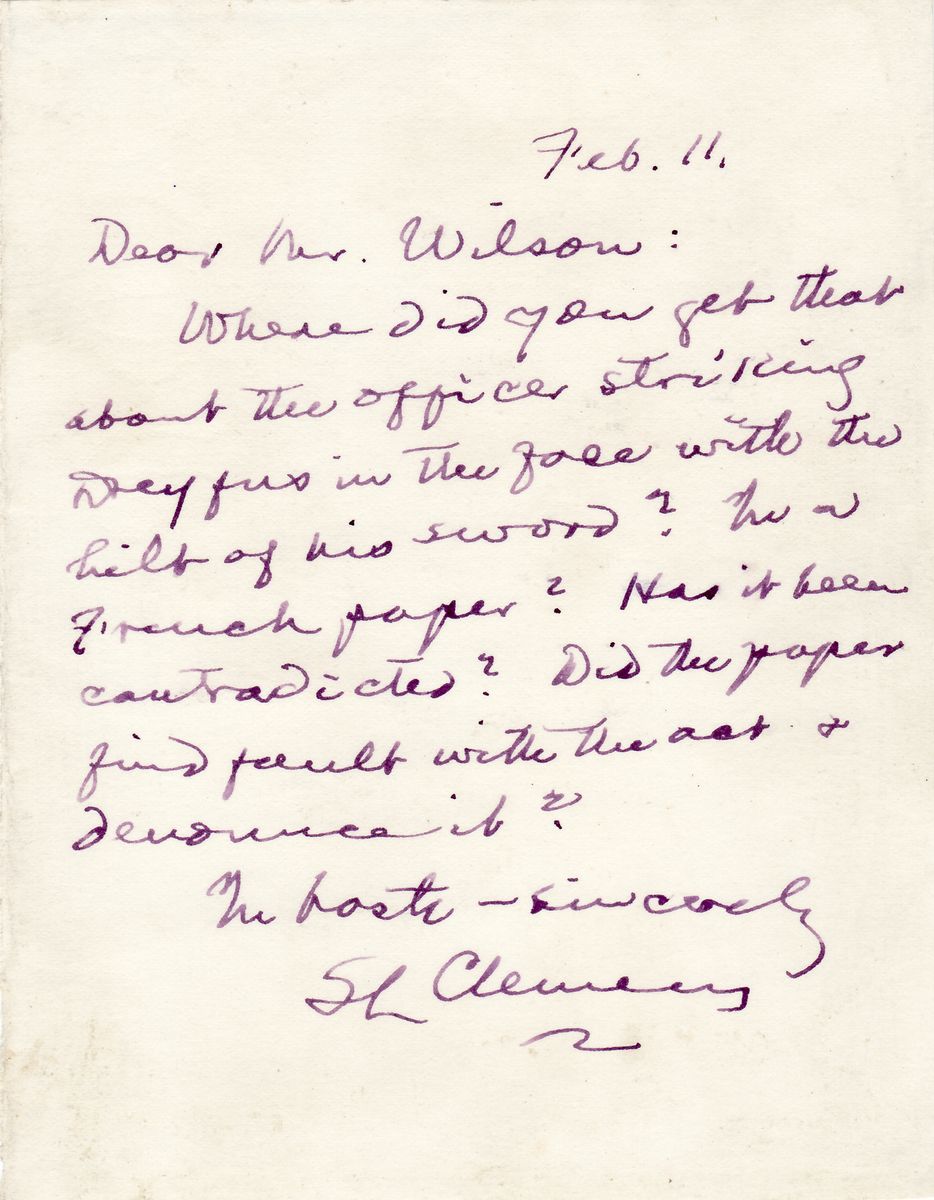 Feb. 11.
Dear Mr. Wilson:
Where did you get that
about the officer striking
Dreyfus in the face with the
hilt of his sword? In a
French paper? Has it been
contradicted? Did the paper
find fault with the act &
denounce it?
In haste — sincerely
SL Clemens